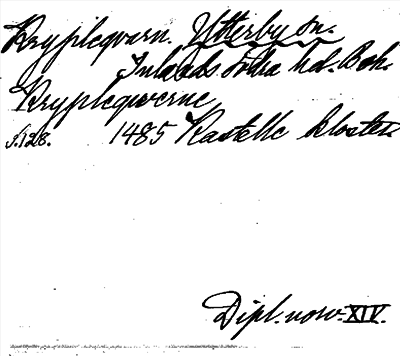 Kryplequarn. Ytterby sn.
Inlands Södra hd. Boh.
Kryplequerne
s. 128. 1485 Kastelle kloster
Dipl. norv. XIV.